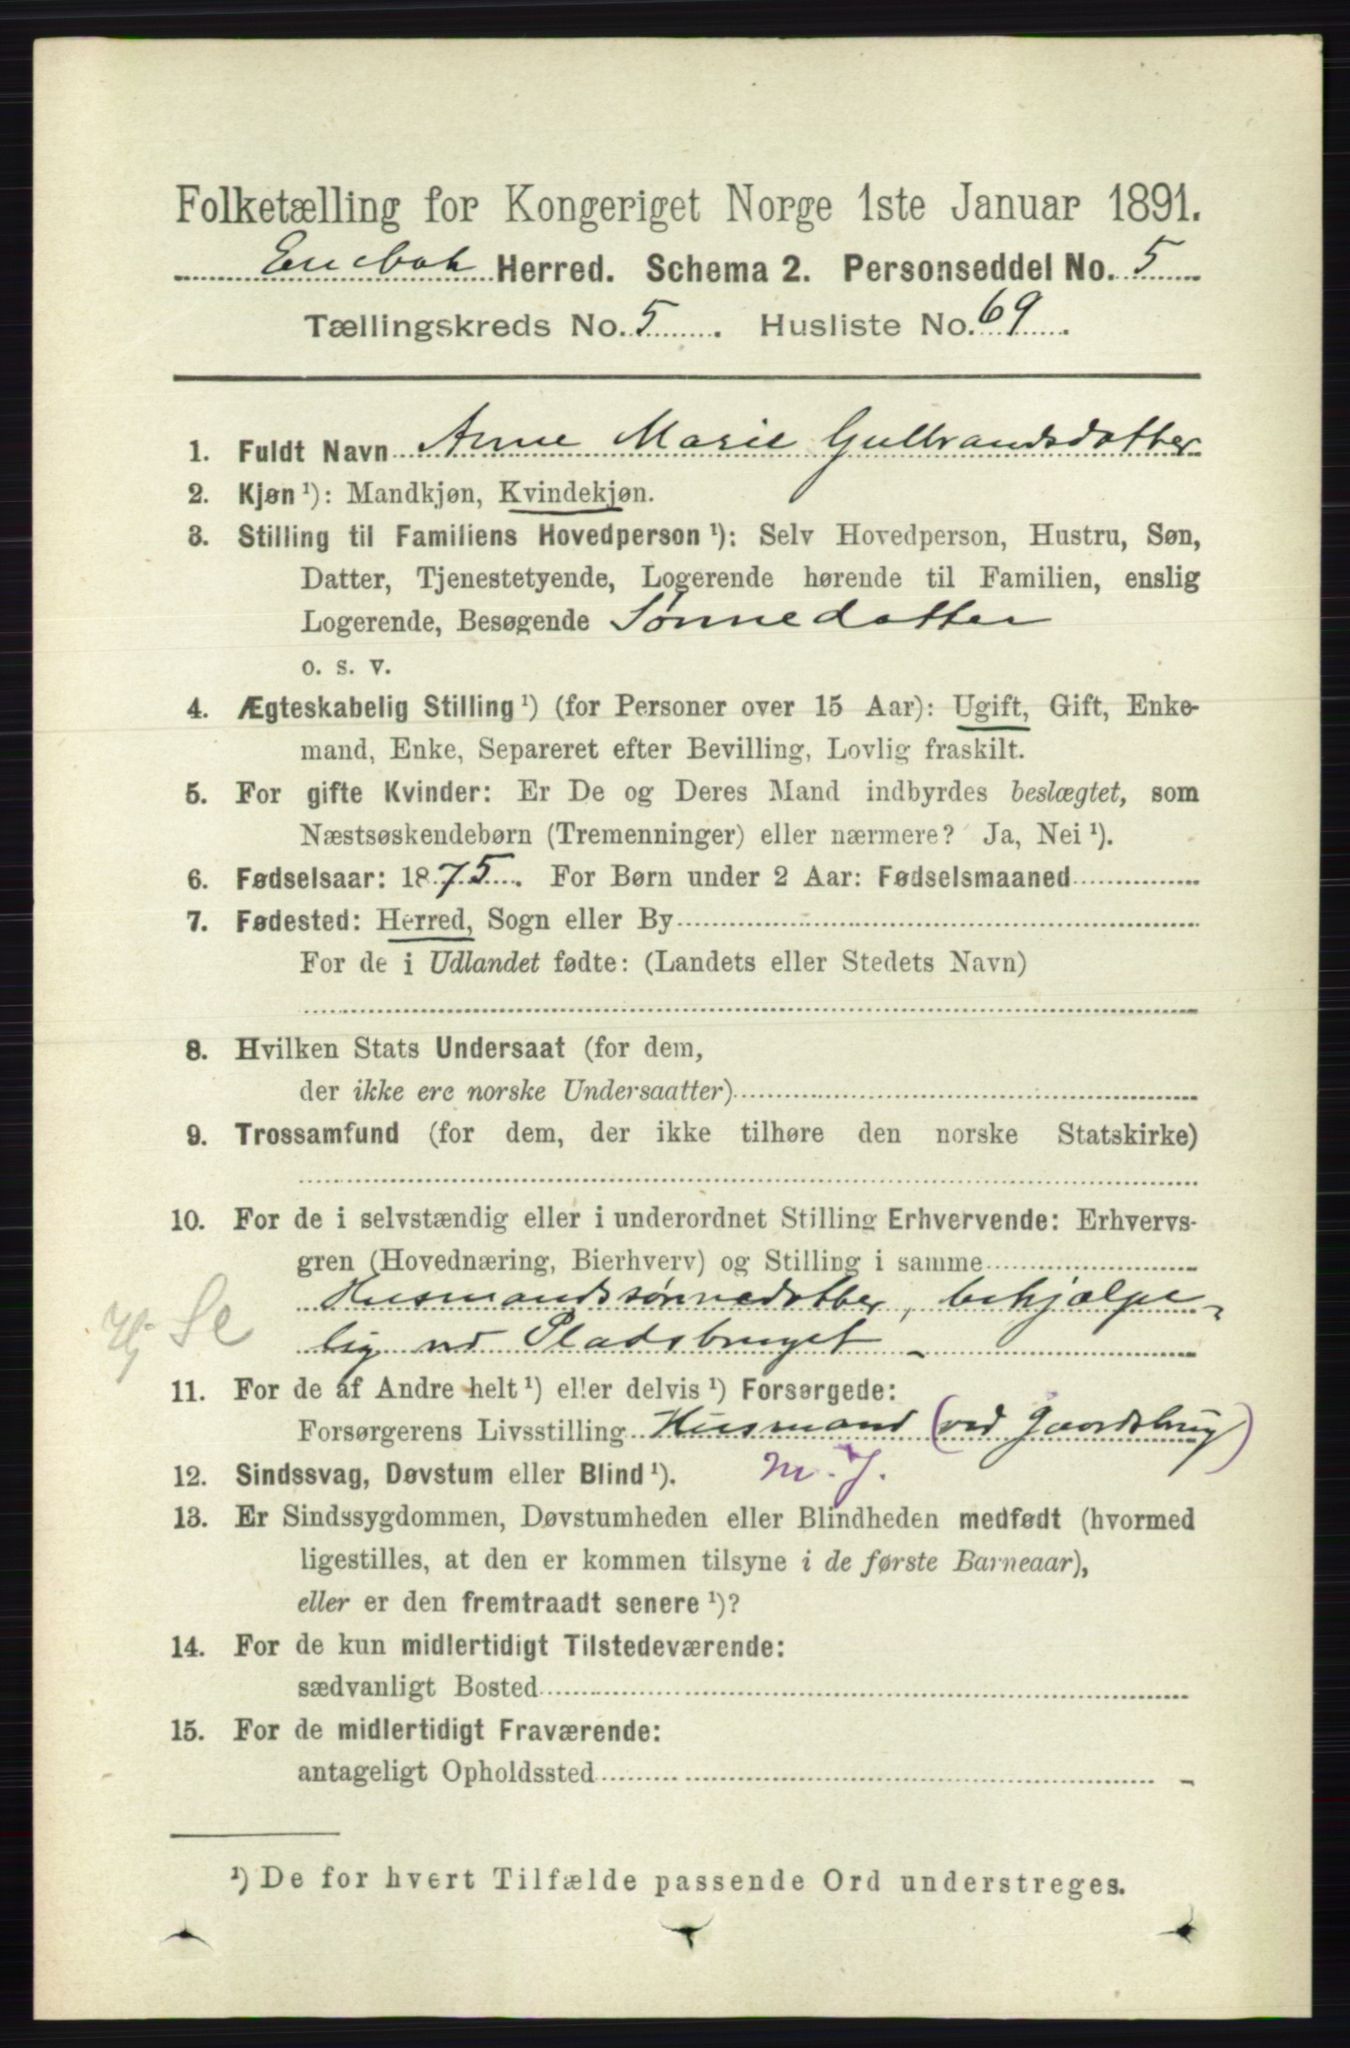 Folketælling for Kongeriget Norge 1ste Januar 1891.
Enebak Herred. Schema 2. Personseddel No. 5
Tællingskreds No. 5. Husliste No. 69.
1. Fuldt Navn Anne Marie Gulbrandsdatter
2. Kjøn ¹): Mandkjøn, Kvindekjøn.
3. Stilling til Familiens Hovedperson ¹): Selv Hovedperson, Hustru, Søn,
Datter, Tjenestetyende, Logerende hørende til Familien, enslig
Logerende, Besøgende Sønnedatter
o. s. v.
4. Ægteskabelig Stilling ¹) (for Personer over 15 Aar): Ugift, Gift, Enke-
mand, Enke, Separeret efter Bevilling, Lovlig fraskilt.
5. For gifte Kvinder: Er De og Deres Mand indbyrdes beslægtet, som
Næstsøskendebørn (Tremenninger) eller nærmere? Ja, Nei ¹).
6. Fødselsaar: 1875. For Børn under 2 Aar: Fødselsmaaned
7. Fødested: Herred, Sogn eller By
For de i Udlandet fødte: (Landets eller Stedets Navn)
8. Hvilken Stats Undersaat (for dem,
der ikke ere norske Undersaatter)
9. Trossamfund (for dem, der ikke tilhøre den norske Statskirke)
10. For de i selvstændig eller i underordnet Stilling Erhvervende: Erhvervs-
gren (Hovednæring, Bierhverv) og Stilling i samme
Husmandssønnedatter, behjælpe-
Hj Se lig v⁠d Pladsbruget -
11. For de af Andre helt ¹) eller delvis ¹) Forsørgede:
Forsørgerens Livsstilling Husmand (ved Gaardsbrug)
12. Sindssvag, Døvstum eller Blind ¹). m. J.
13. Er Sindssygdommen, Døvstumheden eller Blindheden medfødt (hvormed
ligestilles, at den er kommen tilsyne i de første Barneaar),
eller er den fremtraadt senere ¹)?
14. For de kun midlertidigt Tilstedeværende:
sædvanligt Bosted
15. For de midlertidigt Fraværende:
antageligt Opholdssted
¹) De for hvert Tilfælde passende Ord understreges.